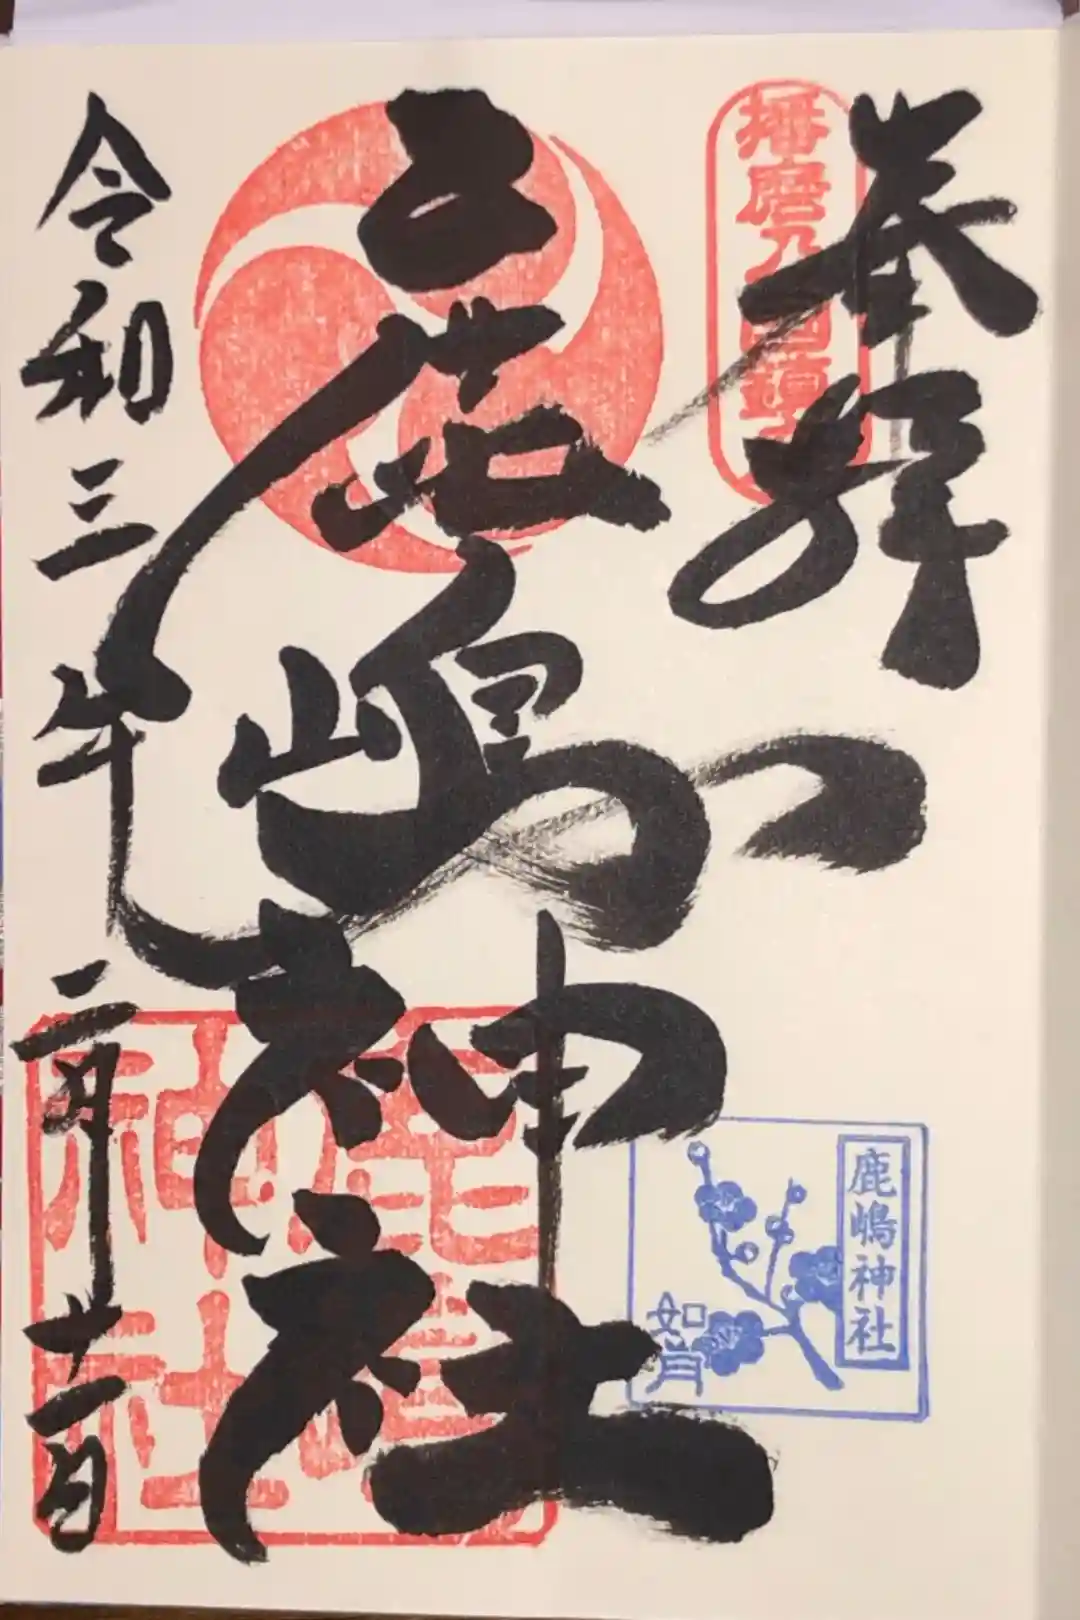 奉拝
播磨乃国鎮
鹿嶋神社
鹿嶋神社
鹿嶋神社
如月
令和三年二月十一日